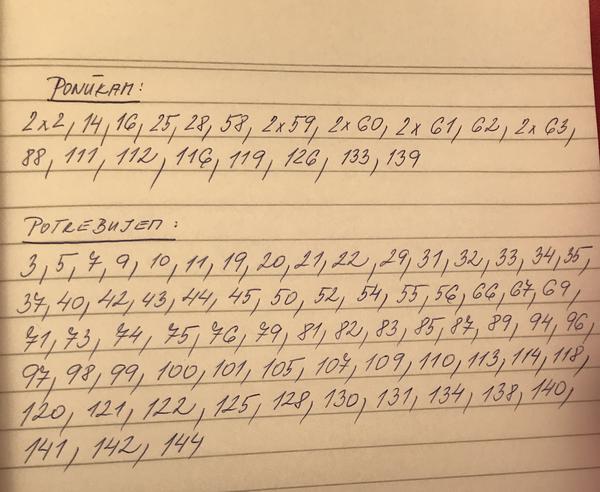 PONÚKAM:
2x2, 14, 16, 25, 28, 58, 2x59, 2x60, 2x61, 62, 2x63,
88, 111, 112, 116, 119, 126, 133, 139
POTREBUJEM:
3, 5, 7, 9, 10, 11, 19, 20, 21, 22, 29, 31, 32, 33, 34, 35,
37, 40, 42, 43, 44, 45, 50, 52, 54, 55, 56, 66, 67, 69,
71, 73, 74, 75, 76, 79, 81, 82, 83, 85, 87, 89, 94, 96,
97, 98, 99, 100, 101, 105, 107, 109, 110, 113, 114, 118,
120, 121, 122, 125, 128, 130, 131, 134, 138, 140,
141, 142, 144